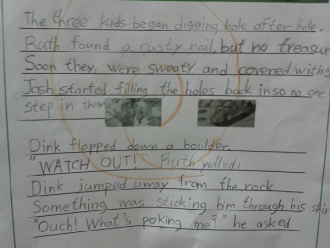 The three kids began digging hole after hole.
Ruth found a rusty nail, but no treasur
Soon they were sweaty and covered with
Josh started filling the holes back in so no one
step in them
Dink flopped down a boulder.
"WATCH OUT! Ruth yelled,
Dink jumped away from the rock
Something was sticking him through his shir
"Ouch! What's poking me?" he asked